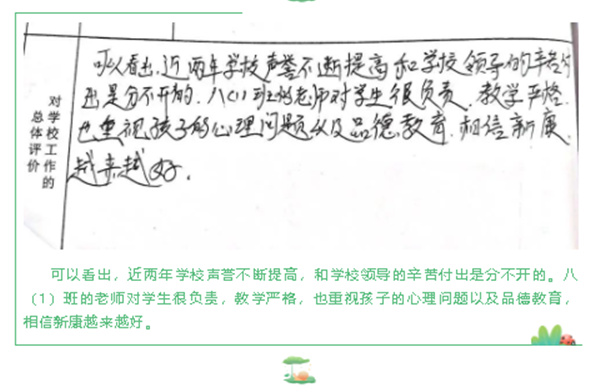 对学校工作的
总体评价
可以看出,近两年学校声誉不断提高和学校领导的辛苦付
出是分不开的.八(1)班的老师对学生很负责,教学严格.
也重视孩子的心理问题以及品德教育.相信新康
越来越好.
可以看出，近两年学校声誉不断提高，和学校领导的辛苦付出是分不开的。八
（1）班的老师对学生很负责，教学严格，也重视孩子的心理问题以及品德教育，
相信新康越来越好。